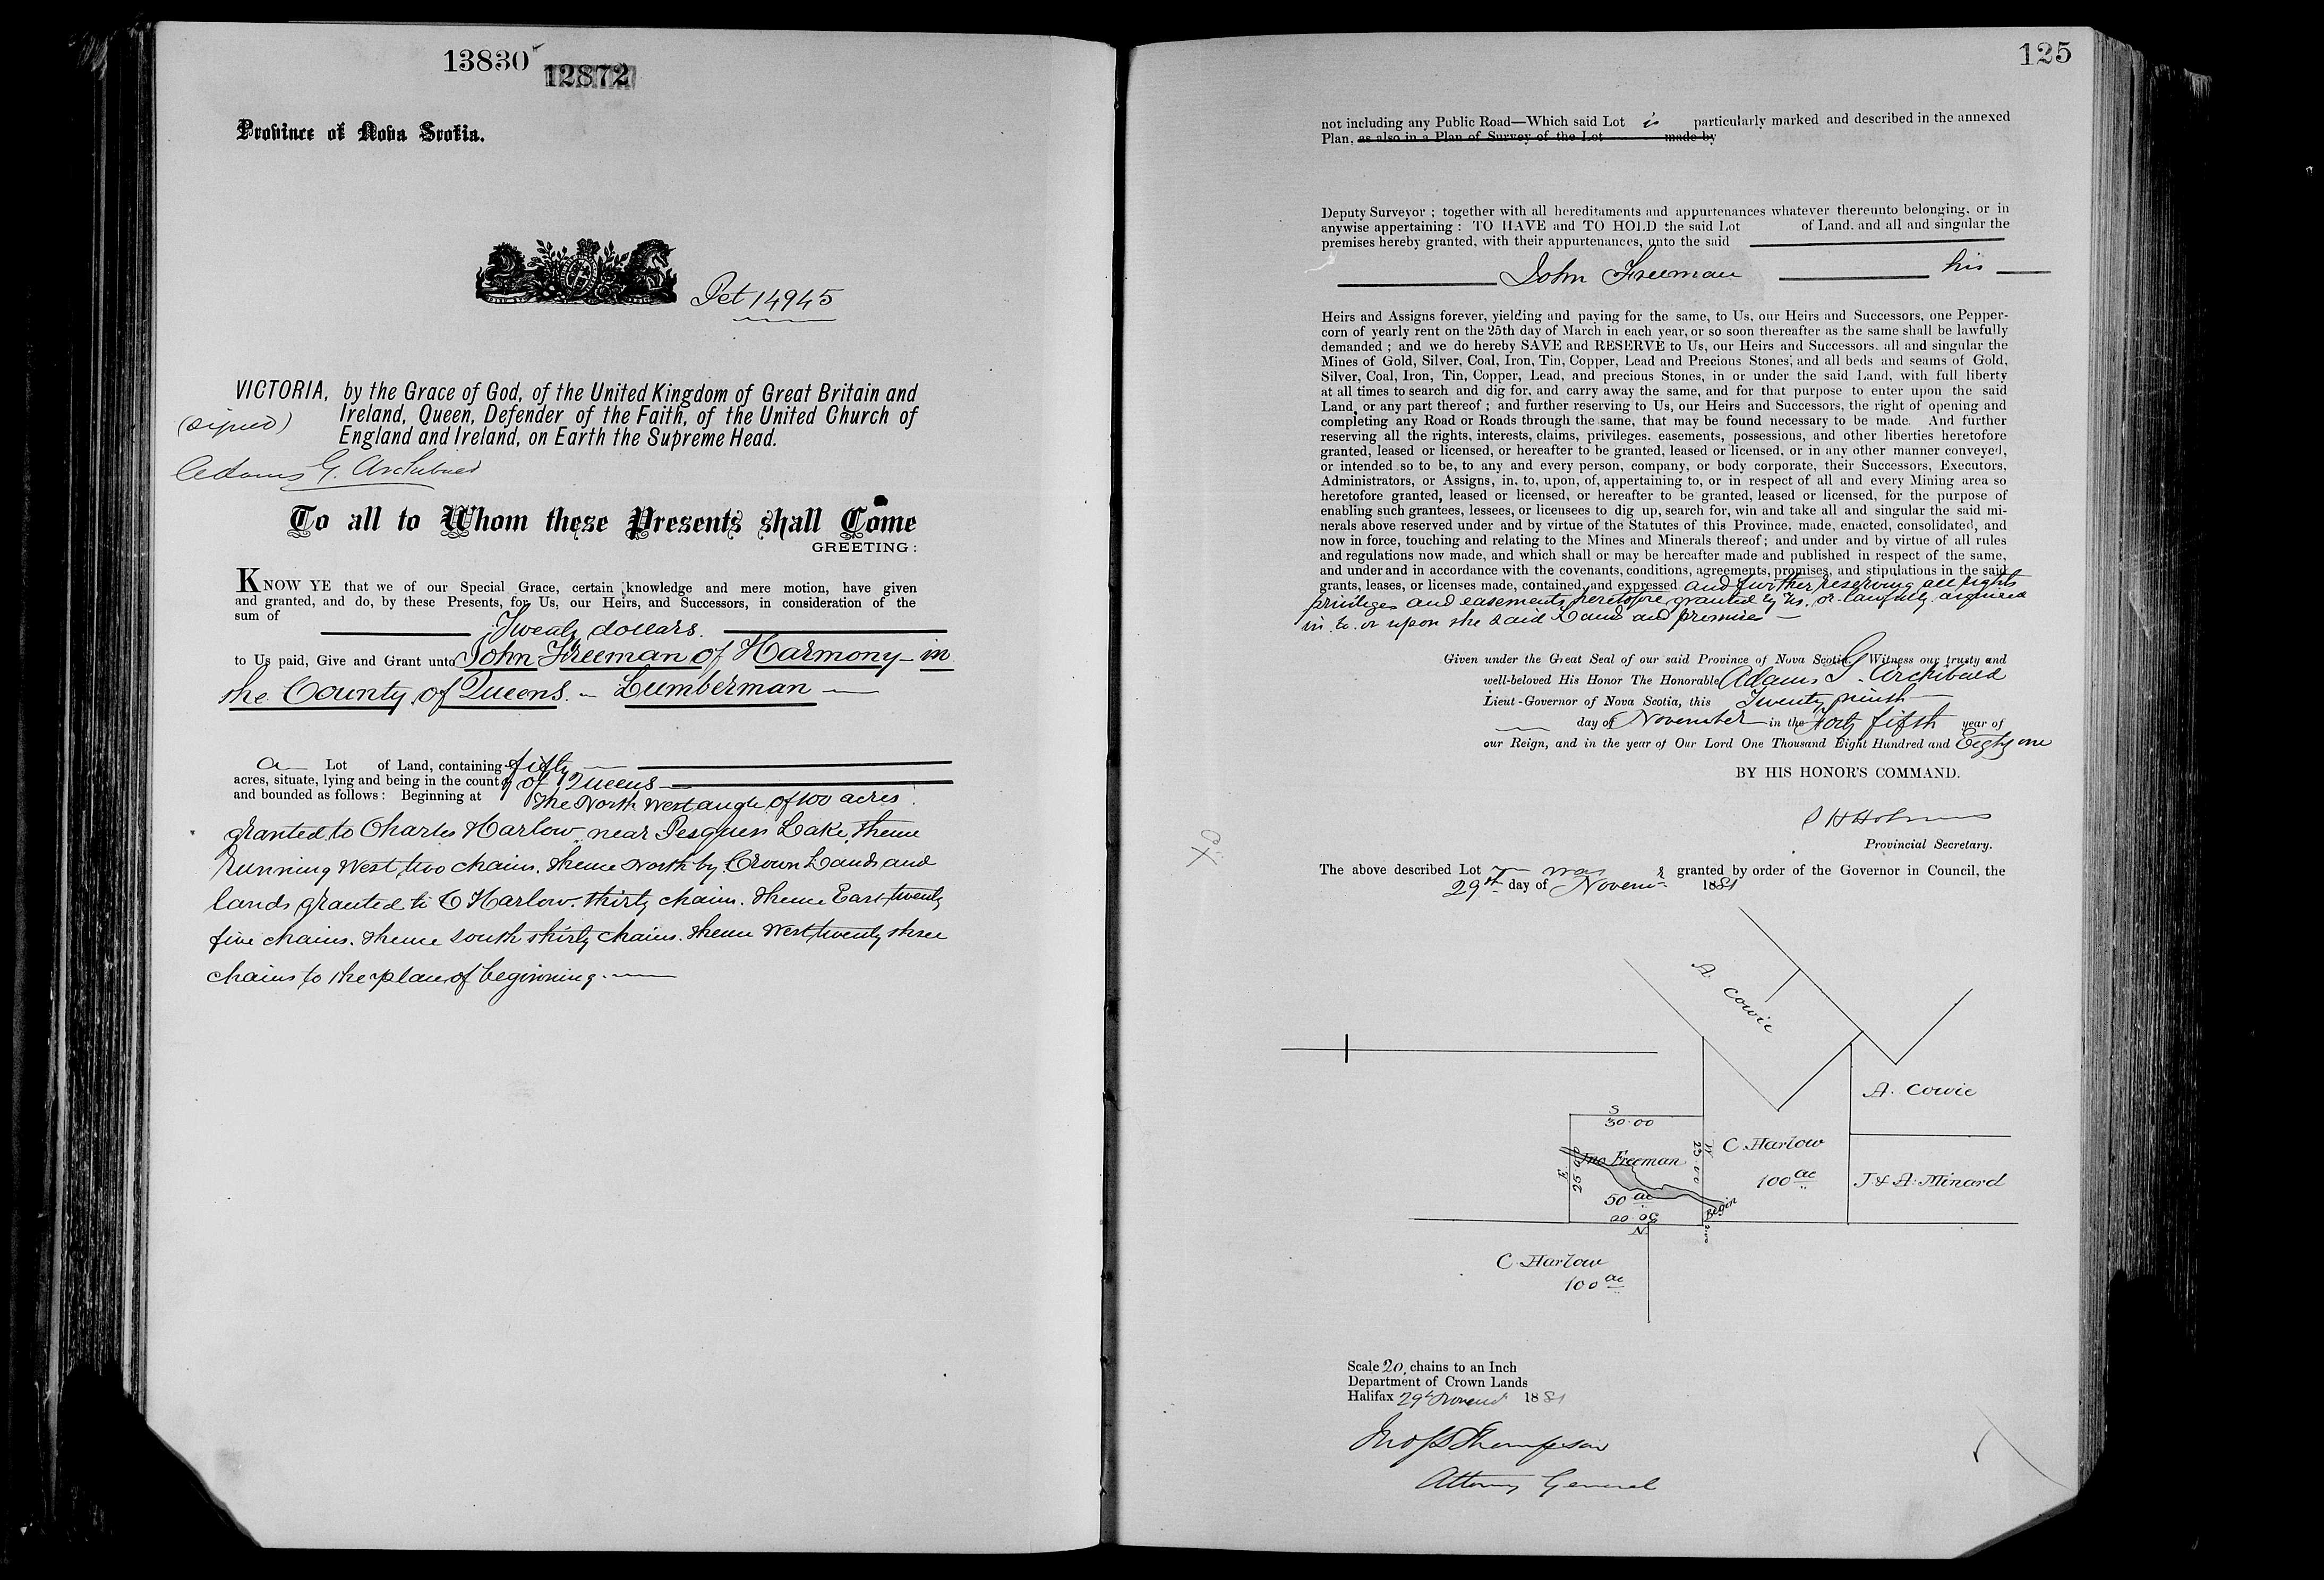 13830
12872
Province of Nova Scotia.
Pet 14945
VICTORIA, by the Grace of God, of the United Kingdom of Great Britain and
Ireland, Queen, Defender of the Faith, of the United Church of
England and Ireland, on Earth the Supreme Head.
(signed)
Adams G. Archibald
To all to Whom these Presents shall Come
GREETING:
KNOW YE that we of our Special Grace, certain knowledge and mere motion, have given
and granted, and do, by these Presents, for Us, our Heirs, and Successors, in consideration of the
sum of
Twenty dollars.
to Us paid, Give and Grant unto John Freeman of Harmony - in
the County of Queens - Lumberman —
a Lot of Land, containing fifty —
acres, situate, lying and being in the county of Queens —
and bounded as follows: Beginning at the North West angle of 100 acres
granted to Charles Harlow near Lake, thence
running West two chains. thence North by Crown Lands and
lands granted to C Harlow thirty chains. thence East twenty
five chains. thence South thirty chains. thence West twenty three
chains to the place of beginning. —
125
not including any Public Road—Which said Lot is particularly marked and described in the annexed
Plan, as also in a Plan of Survey of the Lot made by
Deputy Surveyor; together with all hereditaments and appurtenances whatever thereunto belonging, or in
anywise appertaining: TO HAVE and TO HOLD the said Lot of Land, and all and singular the
premises hereby granted, with their appurtenances, unto the said
John Freeman his
Heirs and Assigns forever, yielding and paying for the same, to Us, our Heirs and Successors, one Pepper-
corn of yearly rent on the 25th day of March in each year, or so soon thereafter as the same shall be lawfully
demanded; and we do hereby SAVE and RESERVE to Us, our Heirs and Successors, all and singular the
Mines of Gold, Silver, Coal, Iron, Tin, Copper, Lead and Precious Stones, and all beds and seams of Gold,
Silver, Coal, Iron, Tin, Copper, Lead, and precious Stones, in or under the said Land, with full liberty
at all times to search and dig for, and carry away the same, and for that purpose to enter upon the said
Land, or any part thereof; and further reserving to Us, our Heirs and Successors, the right of opening and
completing any Road or Roads through the same, that may be found necessary to be made. And further
reserving all the rights, interests, claims, privileges, easements, possessions, and other liberties heretofore
granted, leased or licensed, or hereafter to be granted, leased or licensed, or in any other manner conveyed,
or intended so to be, to any and every person, company, or body corporate, their Successors, Executors,
Administrators, or Assigns, in, to, upon, of, appertaining to, or in respect of all and every Mining area so
heretofore granted, leased or licensed, or hereafter to be granted, leased or licensed, for the purpose of
enabling such grantees, lessees, or licensees to dig up, search for, win and take all and singular the said mi-
nerals above reserved under and by virtue of the Statutes of this Province, made, enacted, consolidated, and
now in force, touching and relating to the Mines and Minerals thereof; and under and by virtue of all rules
and regulations now made, and which shall or may be hereafter made and published in respect of the same,
and under and in accordance with the covenants, conditions, agreements, promises, and stipulations in the said
grants, leases, or licenses made, contained, and expressed and further reserving all rights
privileges and easements heretofore granted by us, or lawfully acquired
in, to, or upon the said Land and premises —
Given under the Great Seal of our said Province of Nova Scotia. Witness our trusty and
well-beloved His Honor The Honorable Adams G. Archibald
Lieut-Governor of Nova Scotia, this Twenty ninth
day of November in the Forty fifth year of
our Reign, and in the year of Our Lord One Thousand Eight Hundred and Eighty one
BY HIS HONOR'S COMMAND.
S H Holmes
Provincial Secretary.
The above described Lot was granted by order of the Governor in Council, the
29th day of Novem 1881
A. Cowie
A. Cowie
S
30.00
Jno Freeman
W
25.00
E
25.00
C. Harlow
100 ac
J & A. Minard
50 ac
30.00
N
Begin
C. Harlow
100 ac
Scale 20 chains to an Inch
Department of Crown Lands
Halifax 29th Novem 1881
Jno S D Thompson
Attorney General